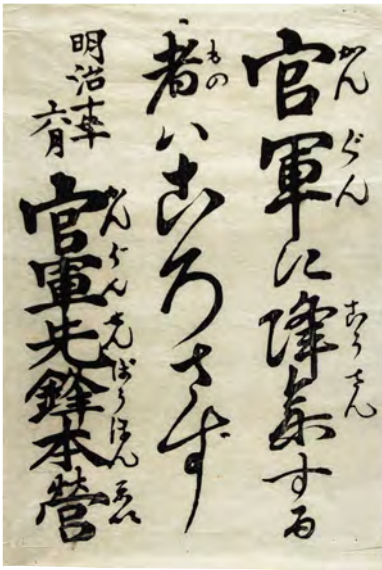 官軍に降参する
者ハころさず
明治十年
六月
官軍先鋒本営